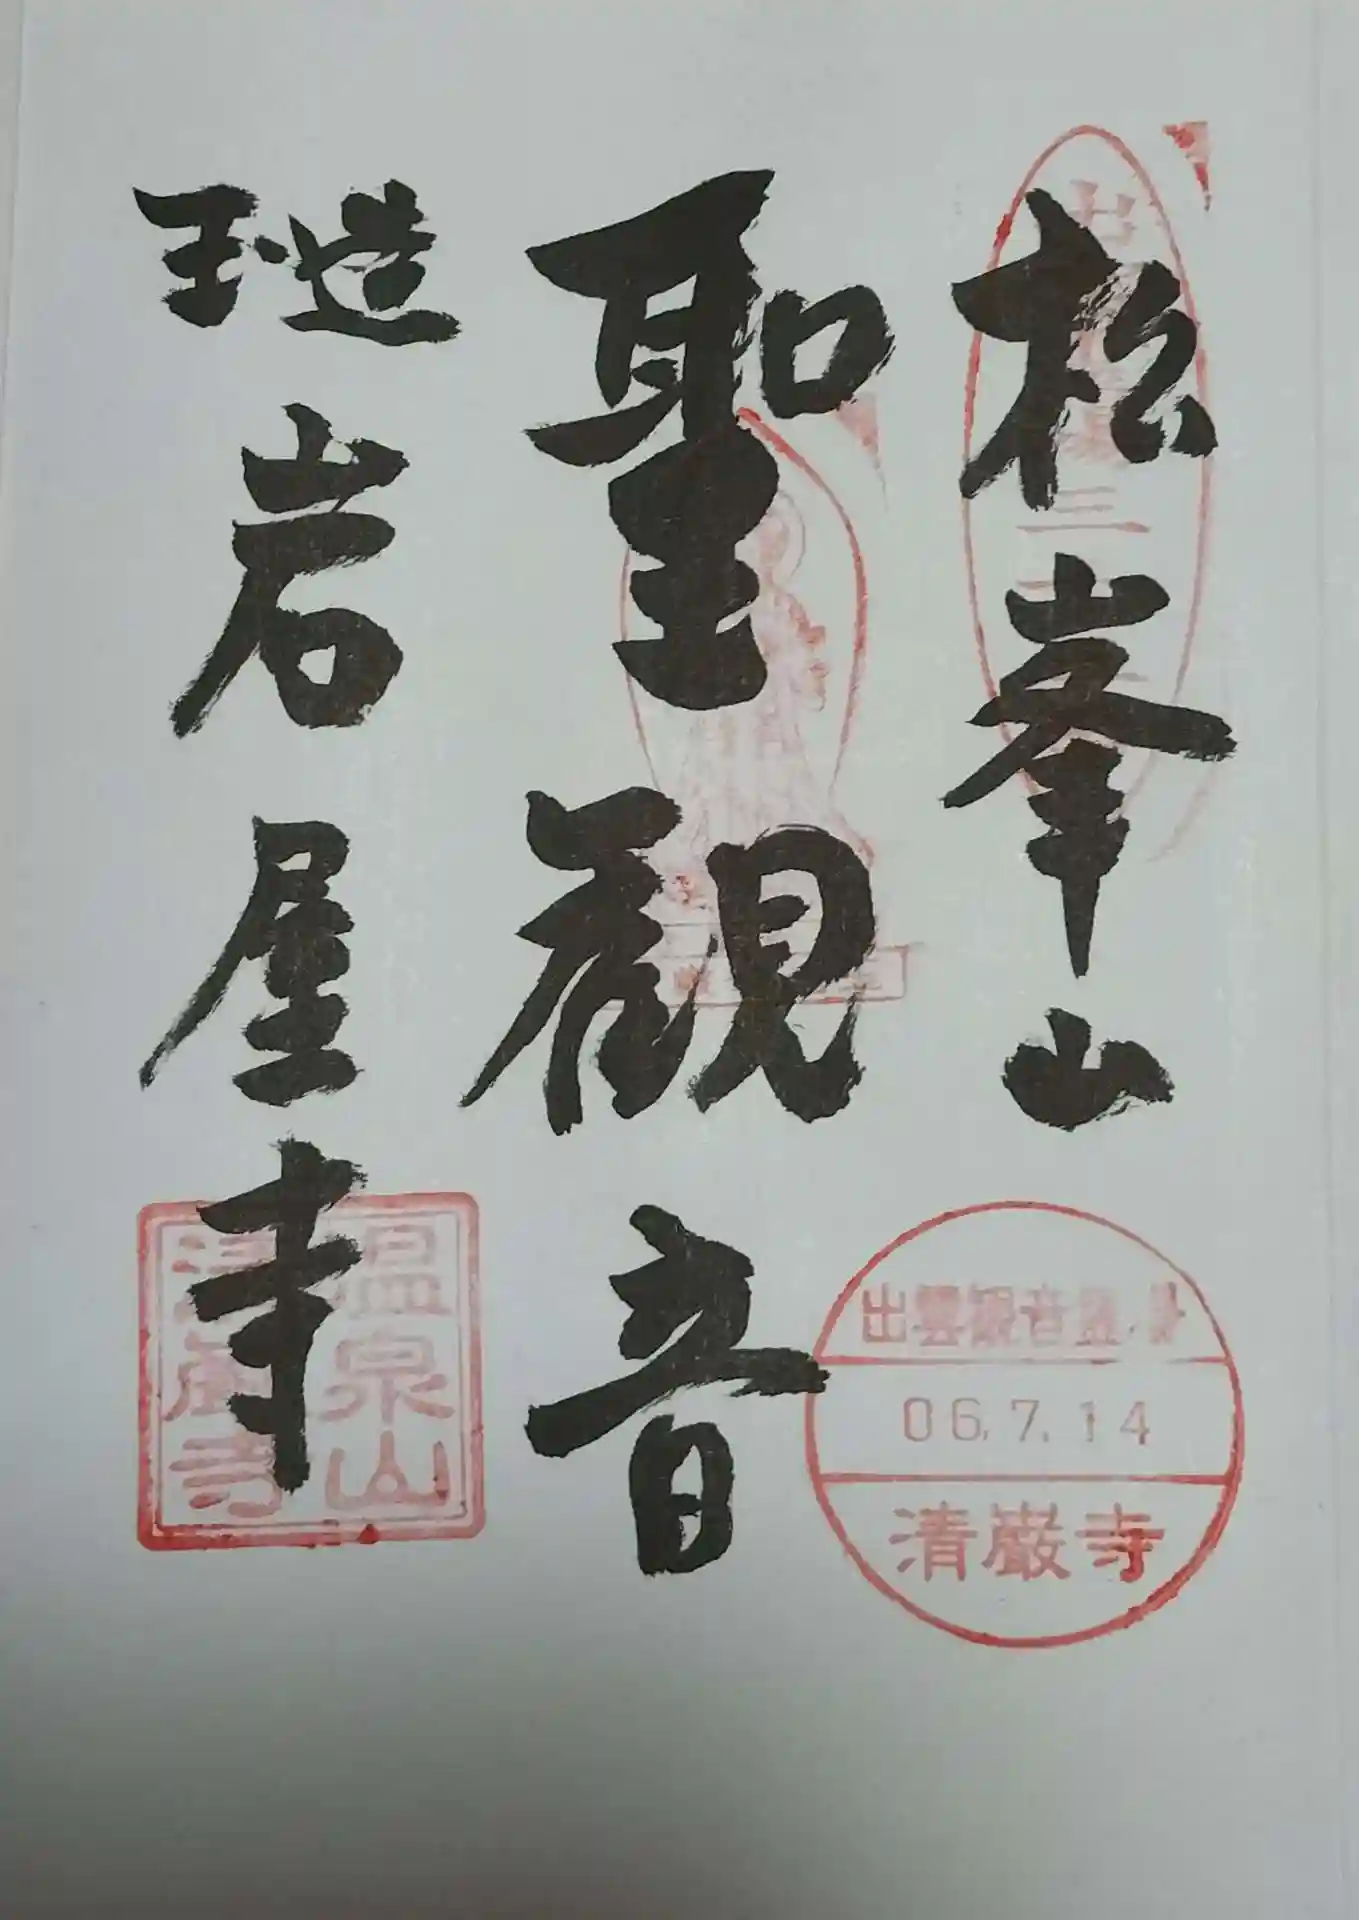 松峯山
聖観音
玉造
岩屋寺
出雲観音霊場
06.7.14
清巌寺
温泉山
清巌寺